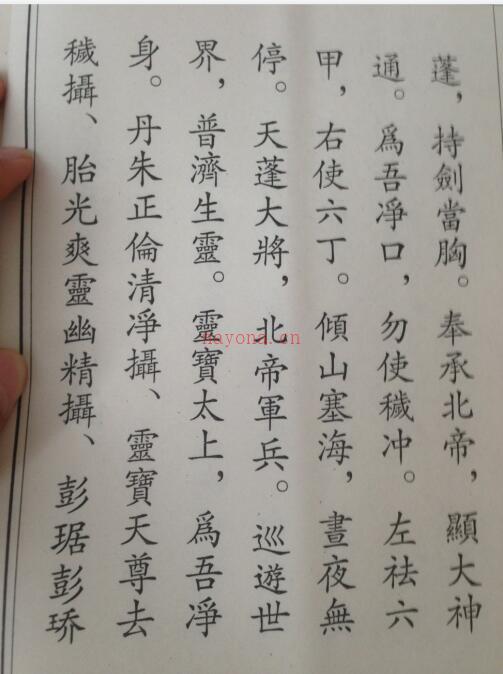 蓬，持劍當胸。奉承北帝，顯大神
通。爲吾淨口，勿使穢冲。左祛六
甲，右使六丁。傾山塞海，晝夜無
停。天蓬大將，北帝軍兵。巡遊世
界，普濟生靈。靈寶太上，爲吾淨
身。丹朱正倫清凈攝、靈寶天尊去
穢攝、胎光爽靈幽精攝、彭琚彭琦
kayona.cn